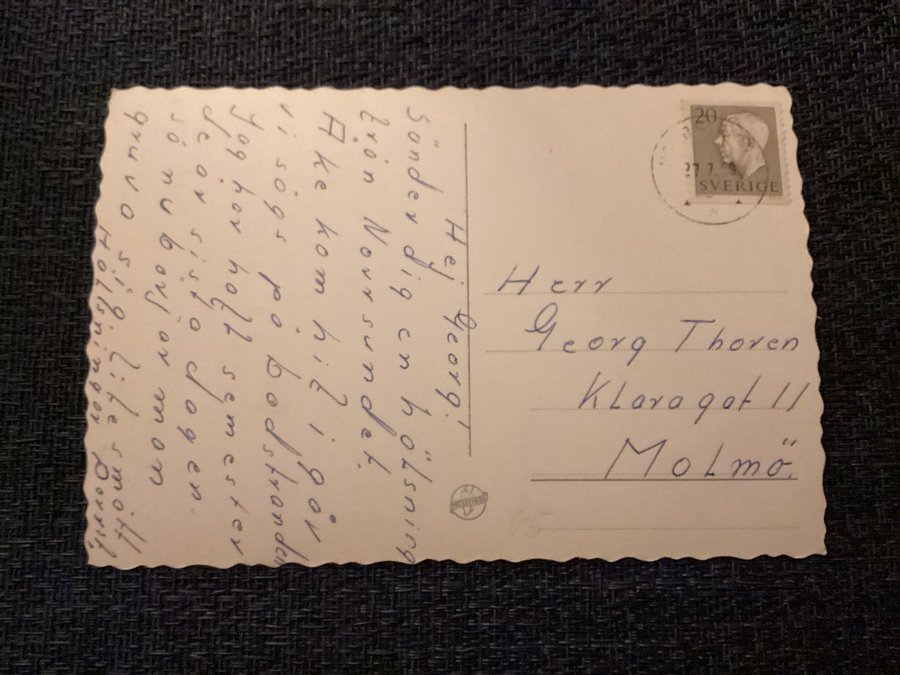 Hej Georg!
Sänder dig en hälsning
från Norrsundet.
Åke kom hit i går
vi sågs på badstranden
Jag har haft semester
det är sista dagen
så nu börjar man
gruva sig lite smått
Hälsningar Dorrit
20
27.7.
SVERIGE
Herr
Georg Thoren
Klaragat 11
Malmö.